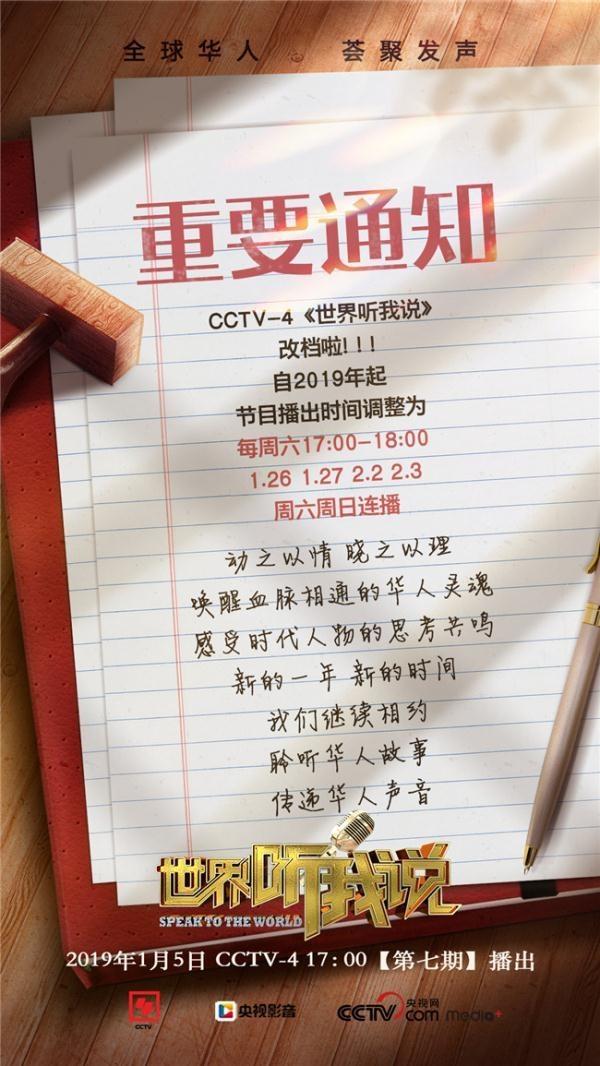 全球华人 荟聚发声
重要通知
CCTV-4《世界听我说》
改档啦!!!
自2019年起
节目播出时间调整为
每周六17:00-18:00
1.26 1.27 2.2 2.3
周六周日连播
动之以情 晓之以理
唤醒血脉相通的华人灵魂
感受时代人物的思考共鸣
新的一年 新的时间
我们继续相约
聆听华人故事
传递华人声音
世界听我说
SPEAK TO THE WORLD
2019年1月5日 CCTV-4 17:00【第七期】播出
CCTV 央视影音 CCTV.com 央视网 media+